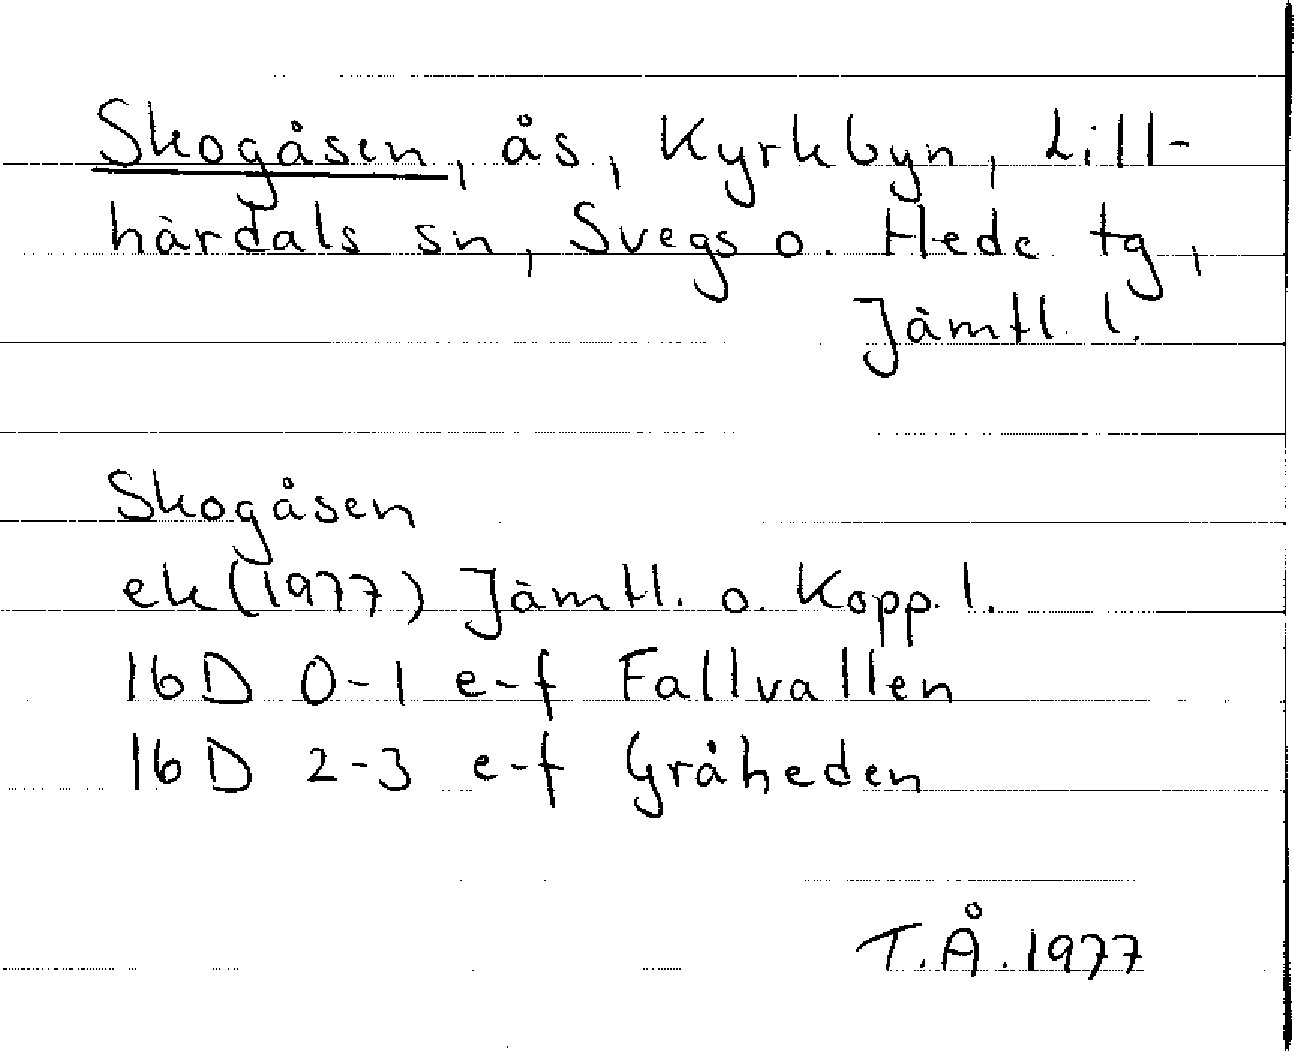 Skogåsen, ås, Kyrkbyn, Lill-
härdals sn, Svegs o. Hede tg,
Jämtl. l.
Skogåsen
ek (1977) Jämtl. o. Kopp. l.
16D 0-1 e-f Fallvallen
16D 2-3 e-f Gråheden
T.Å. 1977